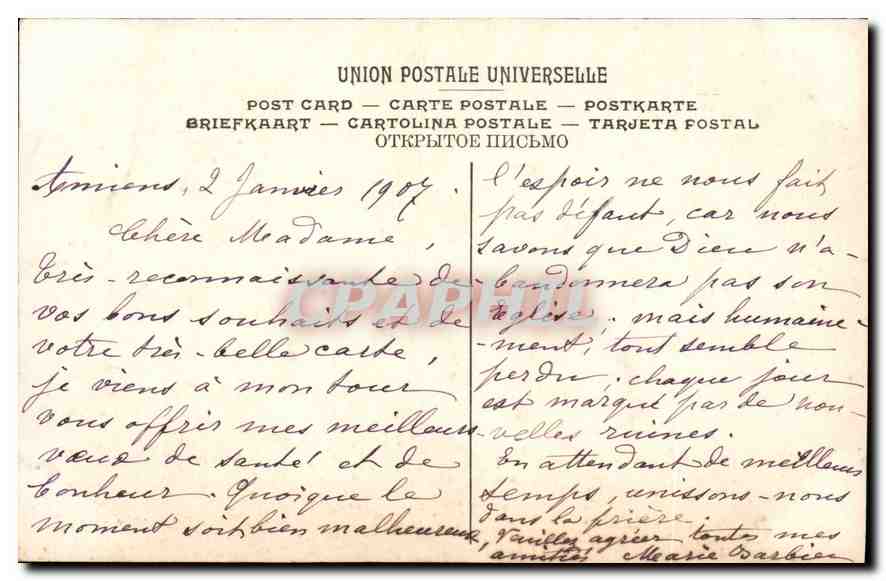 UNION POSTALE UNIVERSELLE
POST CARD — CARTE POSTALE — POSTKARTE
BRIEFKAART — CARTOLINA POSTALE — TARJETA POSTAL
ОТКРЫТОЕ ПИСЬМО
Amiens, 2 Janvier 1907.
Chère Madame,
très-reconnaissante de
vos bons souhaits et de
votre très-belle carte,
je viens à mon tour
vous offrir mes meilleurs
vœux de santé et de
bonheur. Quoique le
moment soit bien malheureux,
l'espoir ne nous fait
pas défaut, car nous
savons que Dieu n'a-
bandonnera pas son
Eglise; mais humaine-
-ment, tout semble
perdu; chaque jour
est marqué par de nou-
-velles ruines.
En attendant de meilleurs
temps, unissons-nous
dans la prière.
Veuillez agréer toutes mes
amitiés Marie Barbier
CPAPHIL